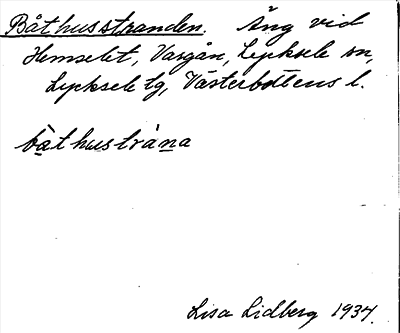 Båthusstranden. Äng vid
Hemselet, Vargån, Lycksele sn,
Lycksele tg, Västerbottens l.
båthusträna
Lisa Lidberg 1934.